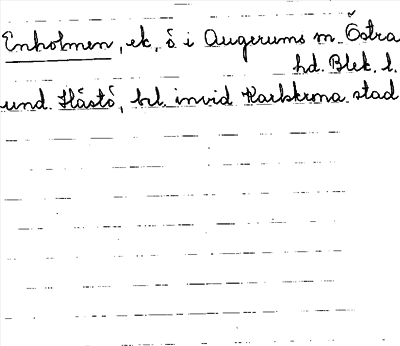 Enholmen, ek, ö i Augerums sn. Östra
hd. Blek. l.
und. Hästö, bl. invid Karlskrona stad